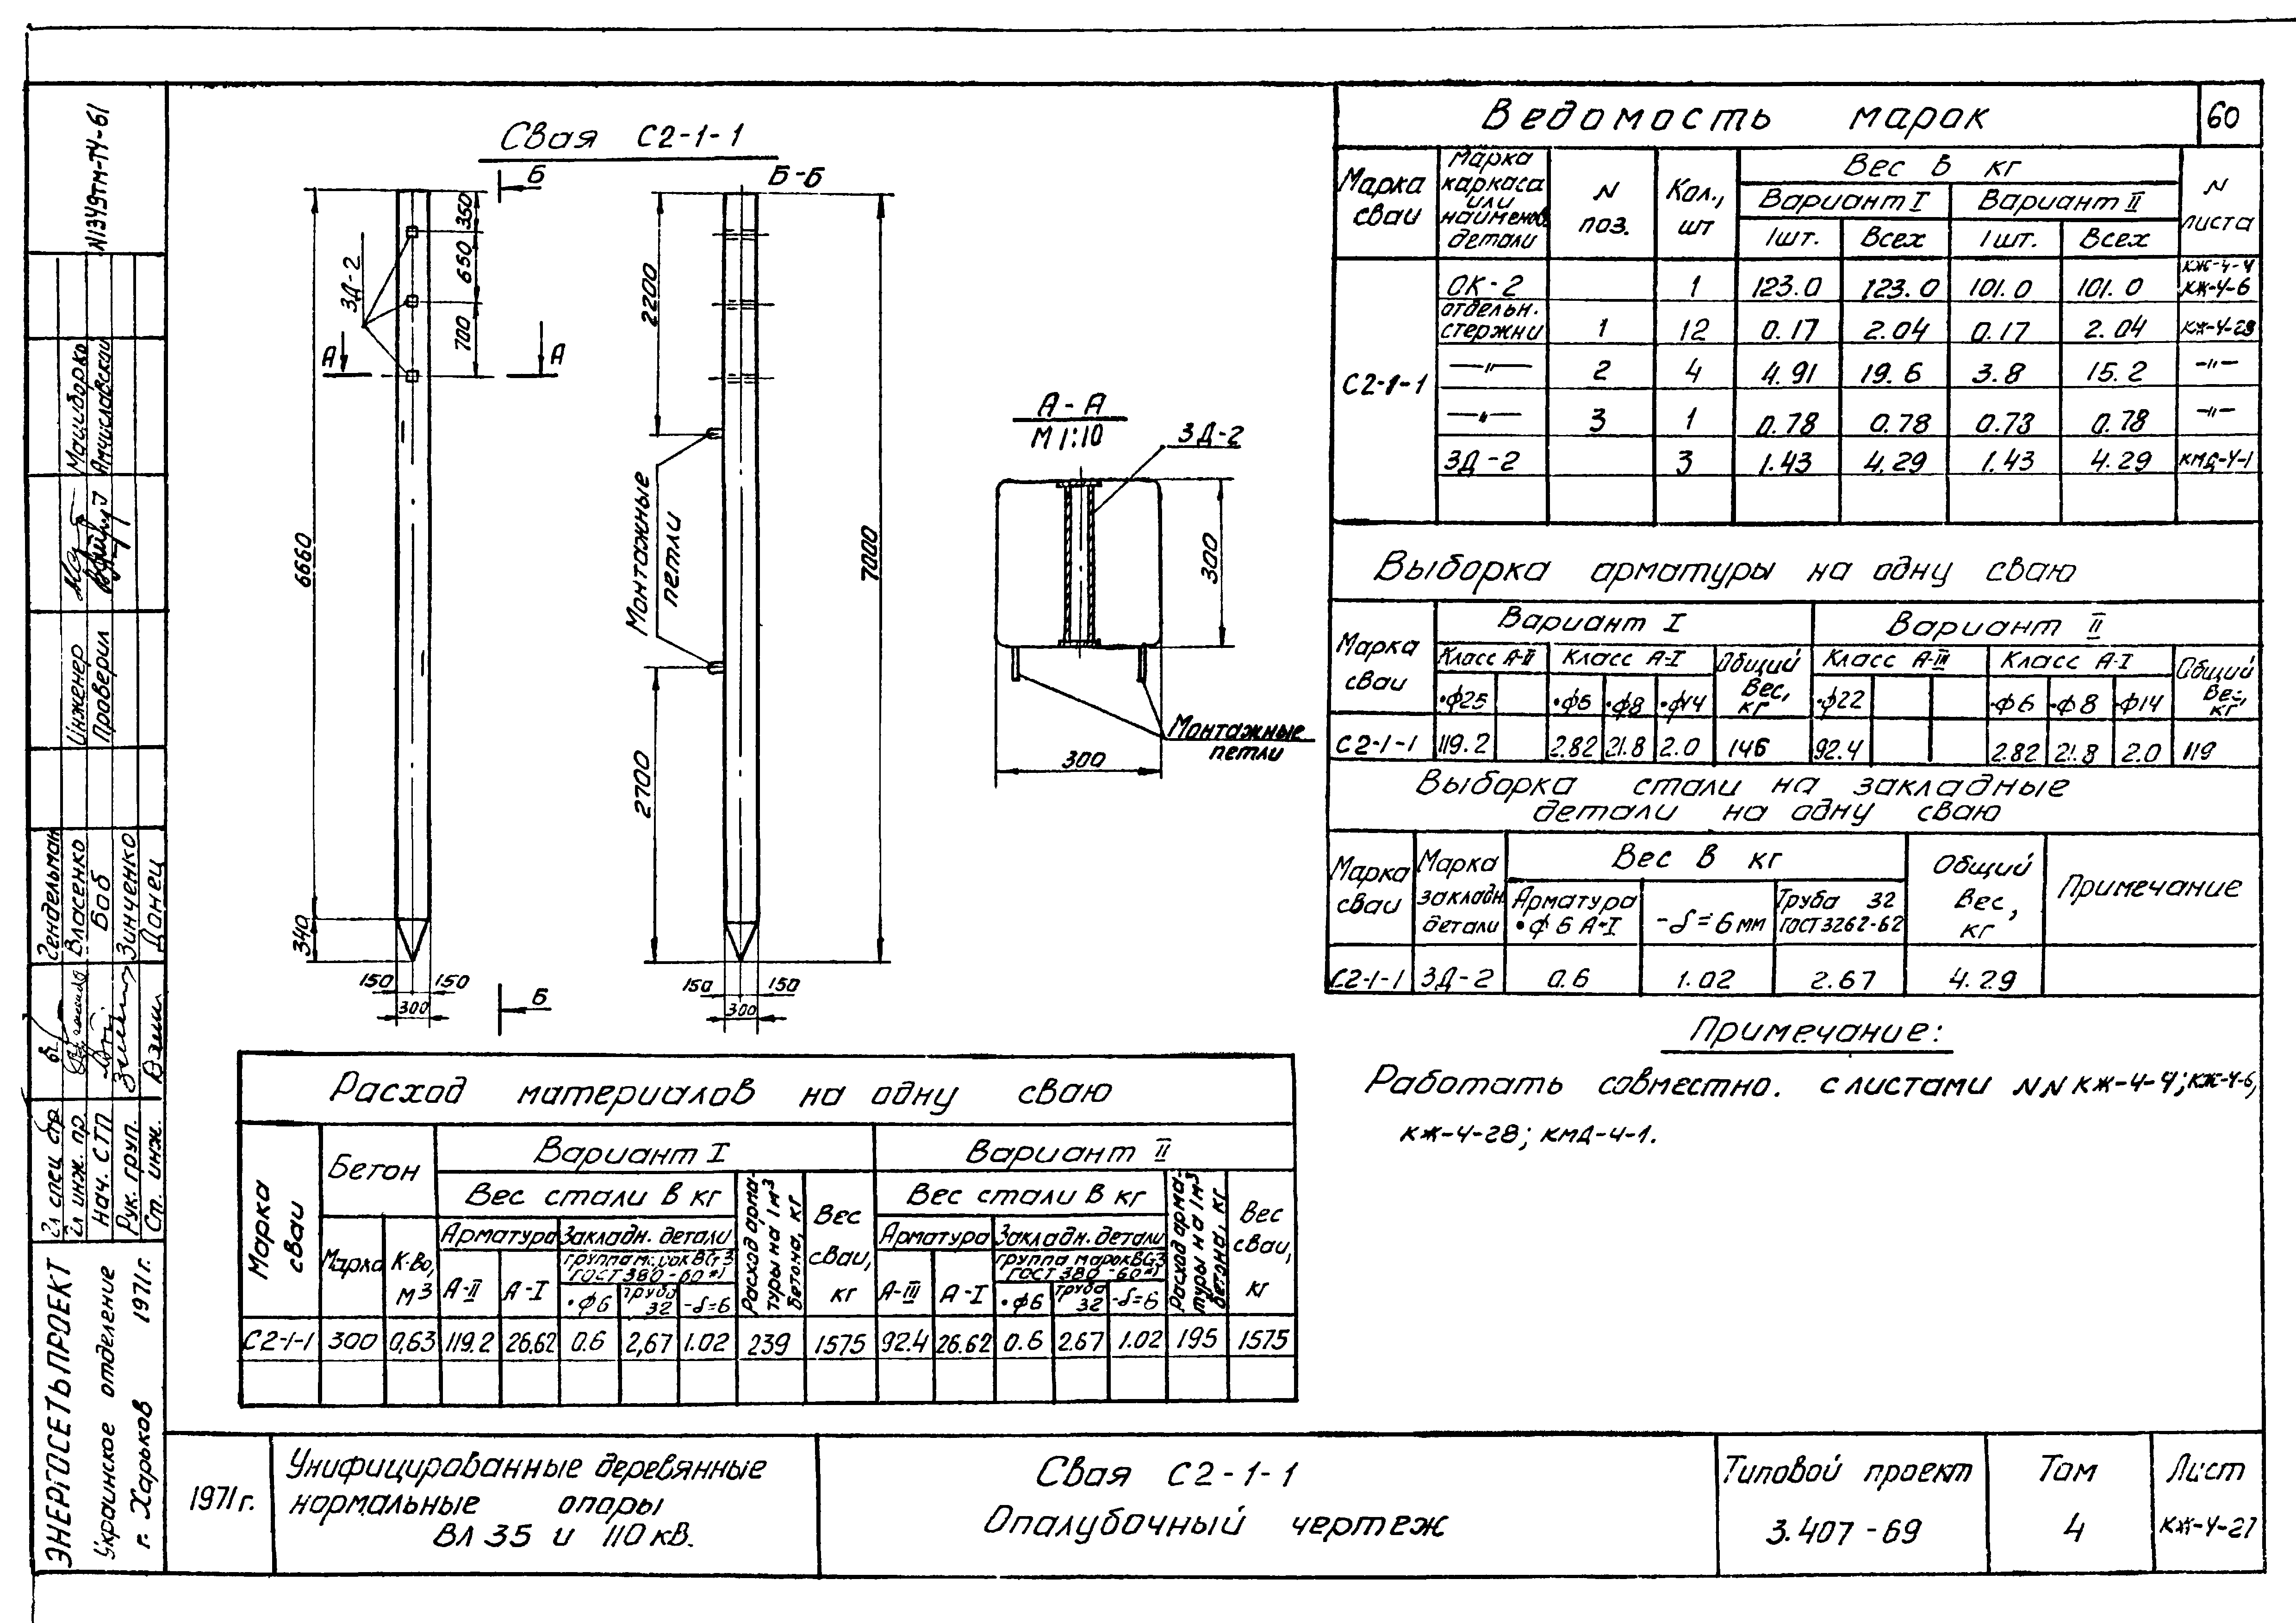 N1349тм-Т4-61
Свая С2-1-1
Б
Б-Б
ЗД-2
350
650
700
А
А
6660
340
150
150
300
Б
2200
2700
7000
Монтажные
петли
150
150
300
А-А
М 1:10
ЗД-2
300
300
Монтажные
петли
Ведомость марок
60
Марка сваи
Марка каркаса или наименов. детали
N поз.
Кол., шт
Вес в кг
N листа
Вариант I
Вариант II
1шт. Всех 1шт. Всех
С2-1-1
ОК-2 1 123.0 123.0 101.0 101.0 КЖ-4-4 КЖ-4-6
отдельн. стержни 1 12 0.17 2.04 0.17 2.04 КЖ-4-28
—"— 2 4 4.91 19.6 3.8 15.2 —"—
—"— 3 1 0.78 0.78 0.78 0.78 —"—
ЗД-2 3 1.43 4.29 1.43 4.29 КМД-4-1
Выборка арматуры на одну сваю
Марка сваи
Вариант I
Вариант II
Класс А-II Класс А-I Общий вес, кг Класс А-III Класс А-I Общий вес, кг
•ф25 •ф6 •ф8 •ф14 •ф22 •ф6 •ф8 •ф14
С2-1-1 119.2 2.82 21.8 2.0 146 92.4 2.82 21.8 2.0 119
Выборка стали на закладные
детали на одну сваю
Марка сваи
Марка закладн. детали
Вес в кг
Общий вес, кг
Примечание
Арматура •ф6 А-I
-δ=6мм
Труба 32 ГОСТ 3262-62
С2-1-1 ЗД-2 0.6 1.02 2.67 4.29
Примечание:
Работать совместно. с листами NN КЖ-4-4; КЖ-4-6,
КЖ-4-28; КМД-4-1.
Расход материалов на одну сваю
Марка сваи
Бетон
Вариант I
Вариант II
Марка
К-во, м³
Вес стали в кг
Расход арма-
туры на 1м³
бетона, кг
Вес сваи, кг
Вес стали в кг
Расход арма-
туры на 1м³
бетона, кг
Вес сваи, кг
Арматура Закладн. детали Арматура Закладн. детали
группа марок ВСт3
ГОСТ 380-60*)
группа марок ВСт3
ГОСТ 380-60*)
А-II А-I •ф6 Труба 32 -δ=6 А-III А-I •ф6 Труба 32 -δ=6
С2-1-1 300 0,63 119.2 26.62 0.6 2,67 1.02 239 1575 92.4 26.62 0.6 2.67 1.02 195 1575
1971г.
Унифицированные деревянные
нормальные опоры
ВЛ 35 и 110 кВ.
Свая С2-1-1
Опалубочный чертеж
Типовой проект
3.407-69
Том
4
Лист
КЖ-4-27
ЭНЕРГОСЕТЬПРОЕКТ
Украинское отделение
г. Харьков 1971г.
Гл спец стр. Гендельман
Гл инж. пр. Власенко
Нач. СТП Баб
Рук. груп. Зинченко
Ст. инж. Донец
Инженер
Проверил